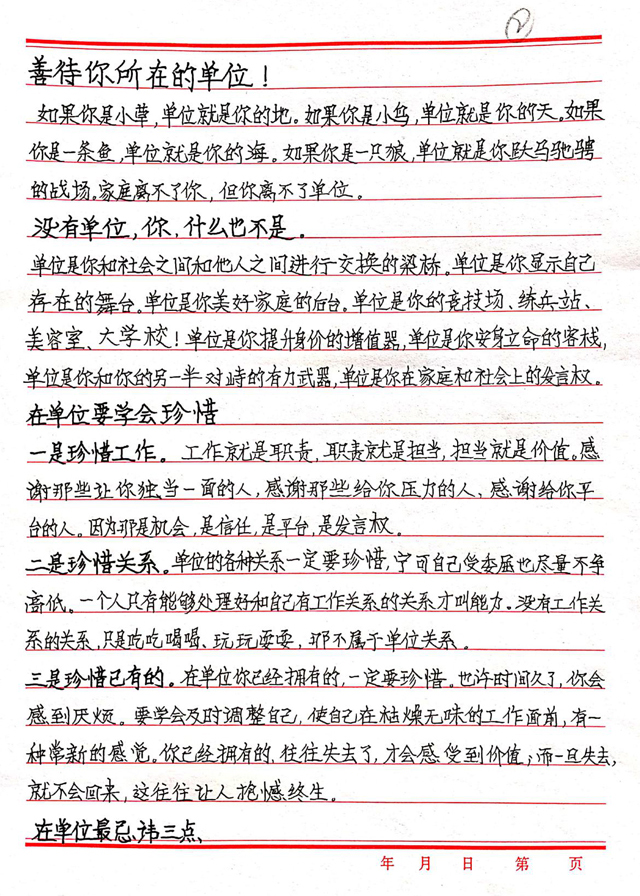 2
善待你所在的单位！
如果你是小草，单位就是你的地。如果你是小鸟，单位就是你的天。如果
你是一条鱼，单位就是你的海。如果你是一只狼，单位就是你跃马驰骋
的战场。家庭离不了你，但你离不了单位。
没有单位，你，什么也不是。
单位是你和社会之间和他人之间进行交换的梁桥。单位是你显示自己
存在的舞台。单位是你美好家庭的后台。单位是你的竞技场、练兵站、
美容室、大学校！单位是你提升身价的增值器，单位是你安身立命的客栈，
单位是你和你的另一半对峙的有力武器，单位是你在家庭和社会上的发言权。
在单位要学会珍惜
一是珍惜工作。工作就是职责，职责就是担当，担当就是价值。感
谢那些让你独当一面的人，感谢那些给你压力的人、感谢给你平
台的人。因为那是机会，是信任，是平台，是发言权。
二是珍惜关系。单位的各种关系一定要珍惜，宁可自己受委屈也尽量不争
高低。一个人只有能够处理好和自己有工作关系的关系才叫能力。没有工作关
系的关系，只是吃吃喝喝、玩玩耍耍，那不属于单位关系。
三是珍惜已有的。在单位你已经拥有的，一定要珍惜。也许时间久了，你会
感到厌烦。要学会及时调整自己，使自己在枯燥无味的工作面前，有一
种常新的感觉。你已经拥有的，往往失去了，才会感受到价值；而一旦失去，
就不会回来，这往往让人抱憾终生。
在单位最忌讳三点、
年 月 日 第 页